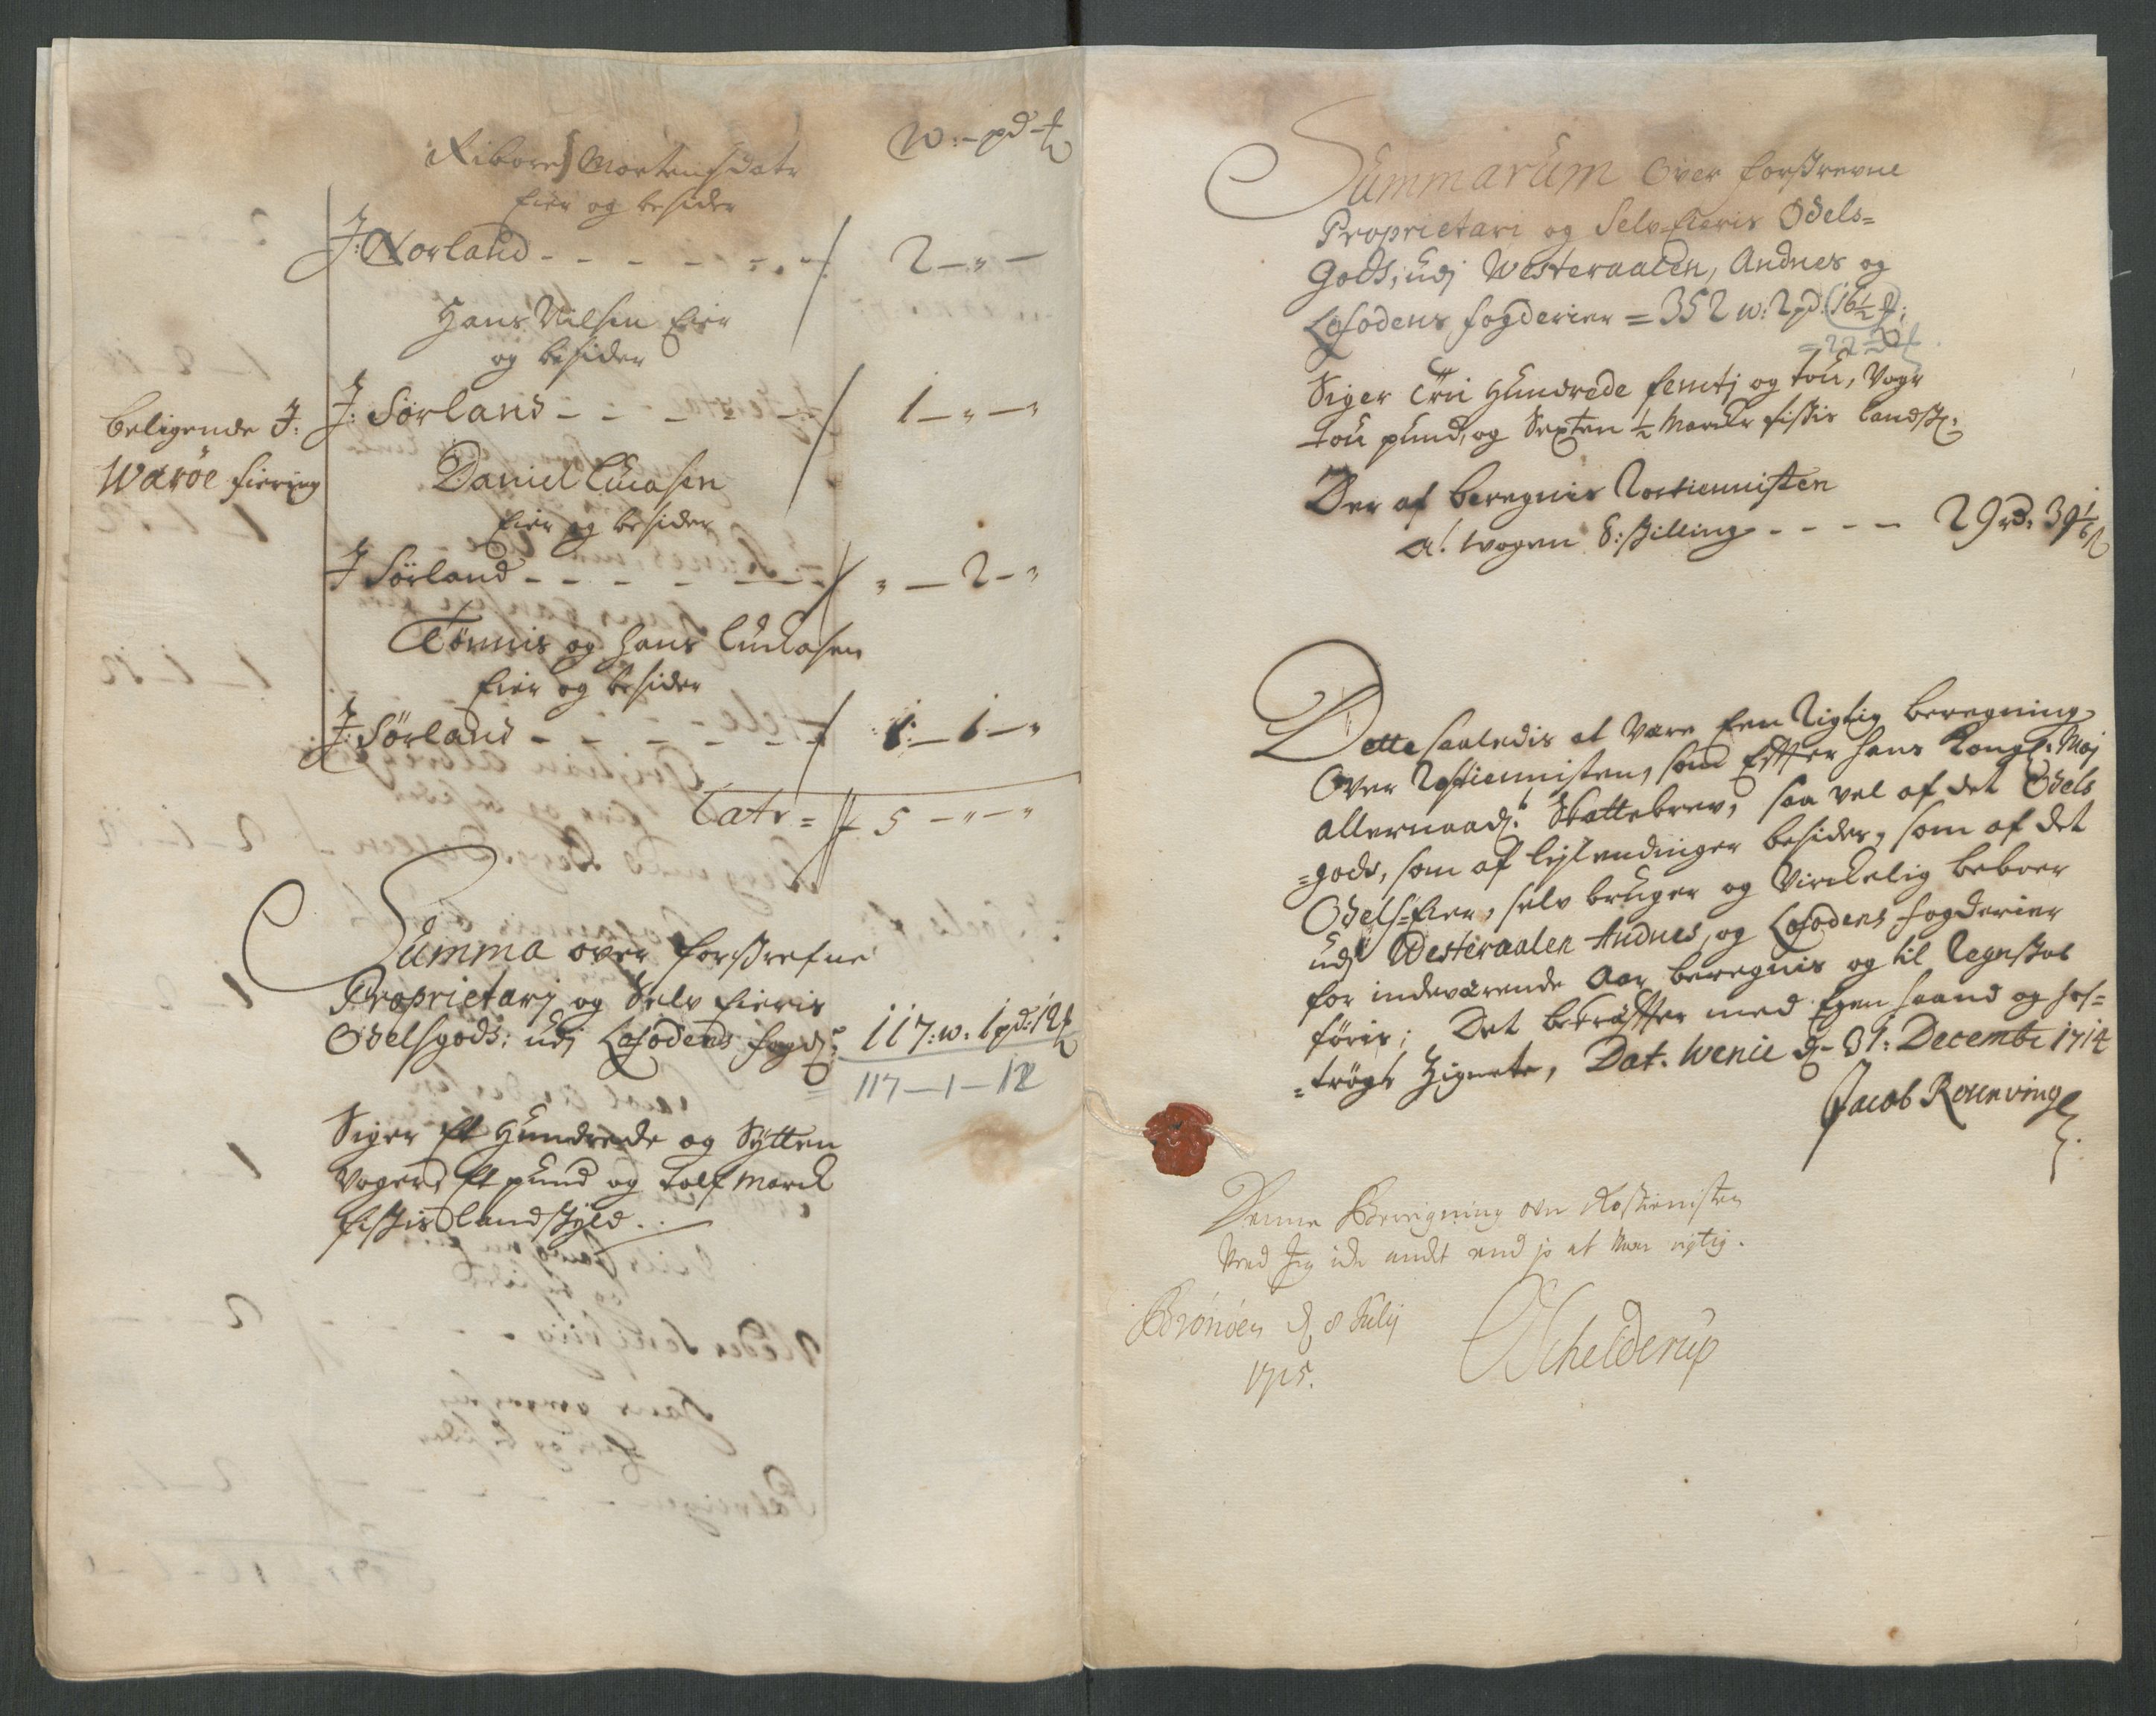 w: - pd - ℔
Ribore Mortensdatr
Eier og besider
J: Norland - - - - - - - 2 - „ -
Hans Nilsen Eier
og besider
beligende J: J: Sørland - - - - - - 1 - „ - „
Warøe fiering Daniel Lucasen
Eier og besider
J Sørland - - - - - - „ - 2 - „
Tønnis og Hans Luckasen
Eier og besider
J: Sørland - - - - - - 1 - 1 - „
Latr = 5 - „ - „
Summa over forskrefne
Proprietarj og Selv Eieris
Odelsgods: udj Lofodens fogd: 117: w: 1 pd: 12 ℔
= 117 - 1 - 12
Siger Et Hundrede og Sytten
Voger, Et pund og tolf Marck
fiskis Landskyld.
Summarum over forskrevne
Proprietari og Selv-Eieris Odels=
Gods, udj Westeraalen, Andnes og
Lofodens fogderier = 352 w: 2 pd: 16½ ℔:
= 22½ ℔
Siger Trei Hundrede femtj og tou, Voger
tou pund, og Sexten ½ Marcker fiskis Landsk:
Der af beregnis Rostiennisten
a: wogen 8: skilling - - - - 29 rd: 39 1/6 s
Dette saaledis at være Een Rigtig beregning
Over Rostiennisten, som Efter Hans Kongl: Maj
allernaad: Skattebrev, saa vel af det Odels
=gods, som af bijlendinger besides, som af det
Odels-Eier, selv bruger og Virckelig beboer
udj Westeraalen Andnes, og Lofodens fogderier
for indeværende Aar beregnis og til Regnskab
føris; Det bekræfter med Egen Haand og hos=
=trøgt Zignete, Dat. Wenie d: 31: Decembr 1714
Jacob Rosenving
Denne Beregning over Rostienisten
Veed Jeg icke andt end jo at være rigtig.
Brønøen d. 8 Julij
1715.
Schelderup